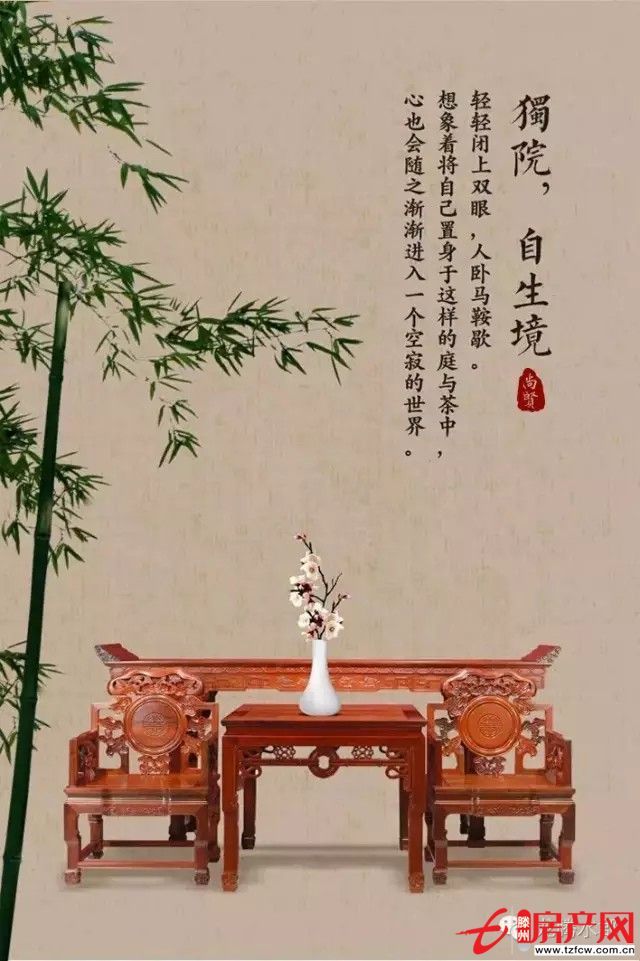 獨院，自生境
轻轻闭上双眼，人卧马鞍歇。
想象着将自己置身于这样的庭与茶中，
心也会随之渐渐进入一个空寂的世界。
尚贤
滕州
房产网
www.tzfcw.com.cn